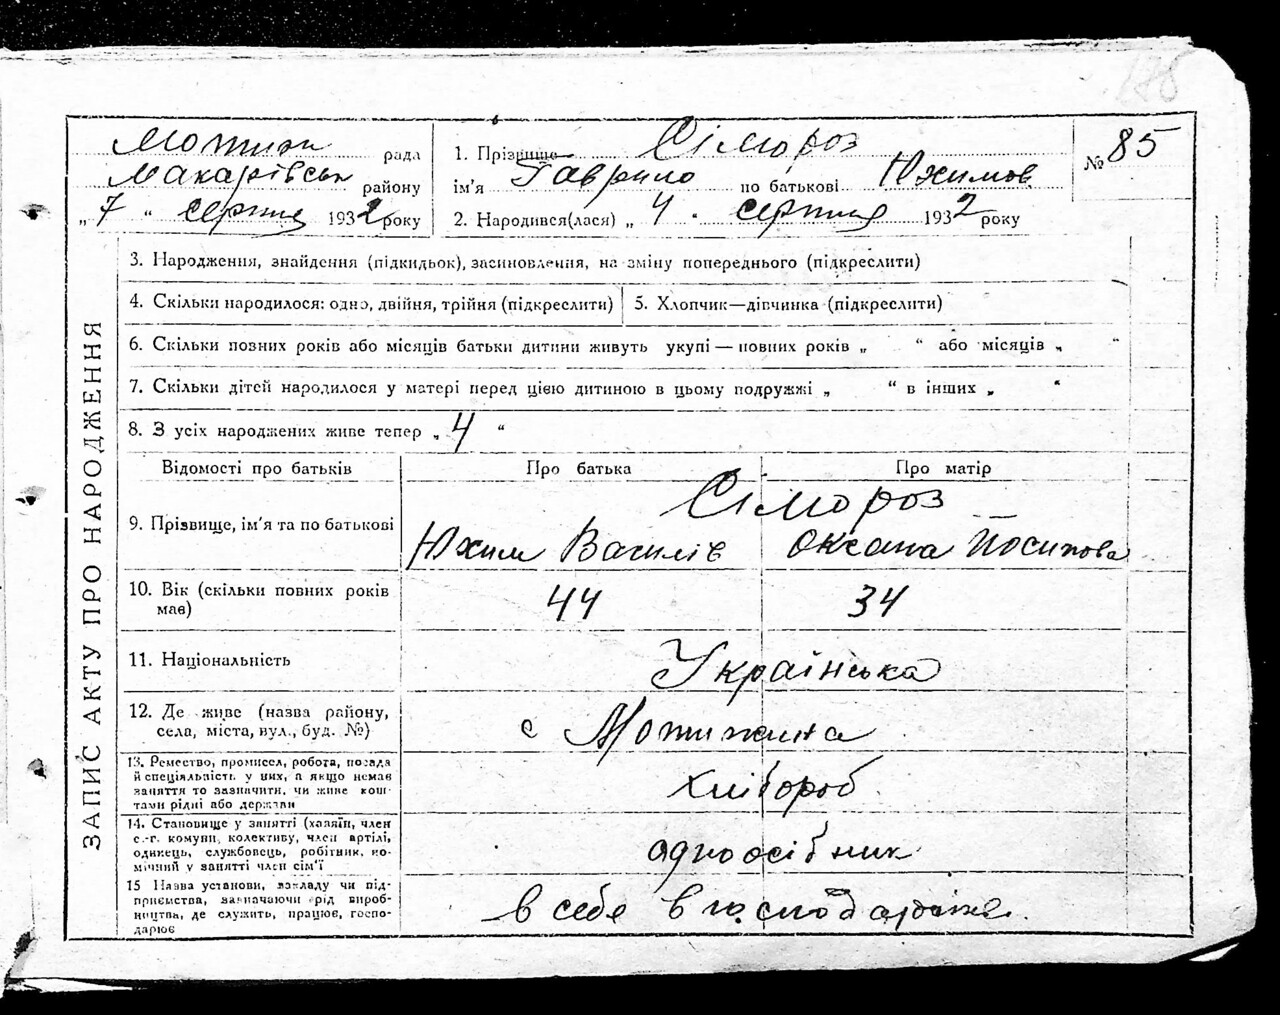 178
Мотижи рада
Макарівськ району
„ 7 “ серпня 1932 року
1. Прізвище Сіморoз
ім'я Гаврило по батькові Юхимов
2. Народився(лася) „ 4 “ серпня 1932 року
№ 85
ЗАПИС АКТУ ПРО НАРОДЖЕННЯ
3. Народження, знайдення (підкидьок), засиновлення, на зміну попереднього (підкреслити)
4. Скільки народилося: одно, двійня, трійня (підкреслити)
5. Хлопчик—дівчинка (підкреслити)
6. Скільки повних років або місяців батьки дитини живуть укупі — повних років „ “ або місяців „ “
7. Скільки дітей народилося у матері перед цією дитиною в цьому подружжі „ “ в інших „ “
8. З усіх народжених живе тепер „ 4 “
Відомості про батьків Про батька Про матір
Сімороз
9. Прізвище, ім'я та по батькові Юхим Василів Оксана Йосипова
10. Вік (скільки повних років
має) 44 34
11. Національність Українська
12. Де живе (назва району,
села, міста, вул., буд. №) с Мотижина
13. Ремество, промисел, робота, посада
й спеціальність у них, а якщо немає
заняття то зазначити, чи живе кош-
тами рідні або держави
хлібороб
14. Становище у занятті (хазяїн, член
с.-г. комуни, колективу, член артілі,
одинець, службовець, робітник, по-
мічний у занятті член сім'ї
одноосібник
15 Назва установи, закладу чи під-
приємства, зазначаючи рід вироб-
ництва, де служить, працює, госпо-
дарює
в себе в господарстві